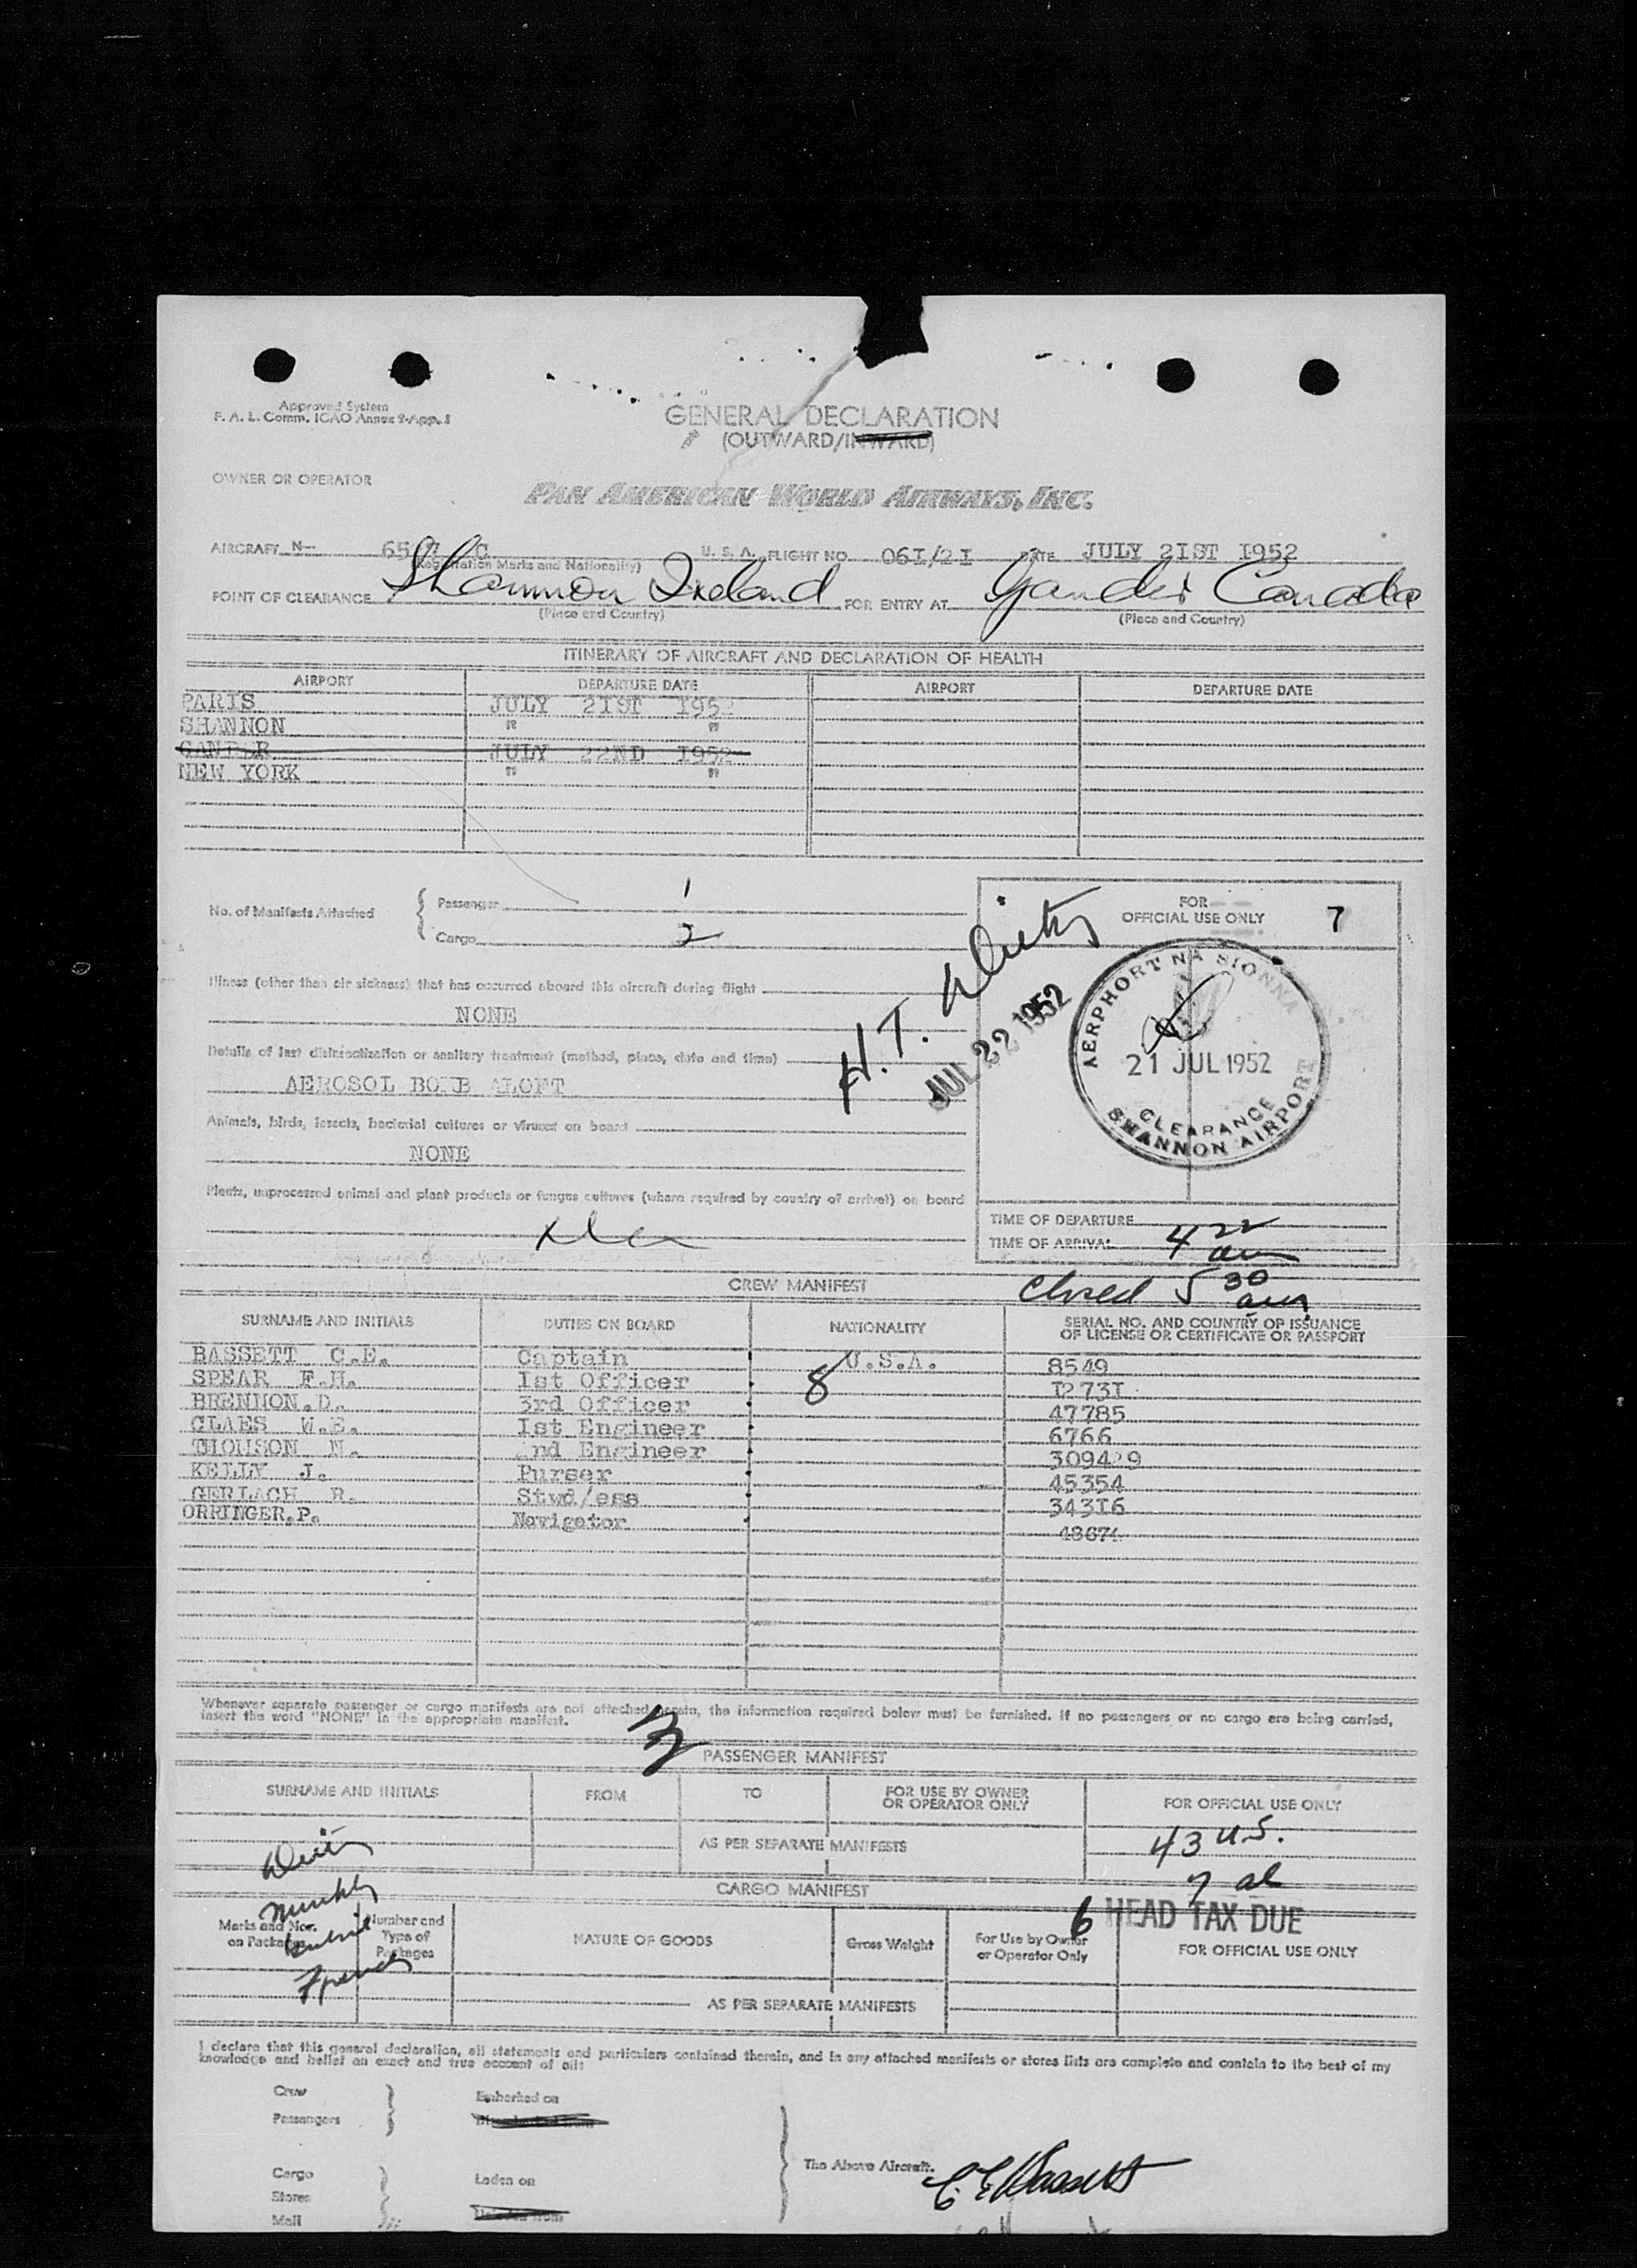 Approved System
F. A. L. Comm. ICAO Annex 9-App. 1
GENERAL DECLARATION
(OUTWARD/INWARD)
OWNER OR OPERATOR
PAN AMERICAN WORLD AIRWAYS, INC.
AIRCRAFT N- C U. S. A. FLIGHT NO. 06I/2I DATE JULY 2IST I952
(Registration Marks and Nationality)
POINT OF CLEARANCE Shannon Ireland FOR ENTRY AT Gander Canada
(Place and Country) (Place and Country)
ITINERARY OF AIRCRAFT AND DECLARATION OF HEALTH
AIRPORT DEPARTURE DATE AIRPORT DEPARTURE DATE
PARIS JULY 2IST I952
SHANNON " "
GANDER JULY 22ND I952
NEW YORK " "
No. of Manifests Attached
Passenger 1
Cargo 2
FOR
OFFICIAL USE ONLY 7
Illness (other than air sickness) that has occurred aboard this aircraft during flight
NONE
Details of last disinsectization or sanitary treatment (method, place, date and time)
AEROSOL BOMB ALOFT
Animals, birds, insects, bacterial cultures or viruses on board
NONE
Plants, unprocessed animal and plant products or fungus cultures (where required by country of arrival) on board
H. T.
JUL 22 1952
AERPHORT NA SIONNA
21 JUL 1952
CLEARANCE
SHANNON AIRPORT
TIME OF DEPARTURE
TIME OF ARRIVAL 4 22 am
CREW MANIFEST
closed 5 30 am
SURNAME AND INITIALS DUTIES ON BOARD NATIONALITY SERIAL NO. AND COUNTRY OF ISSUANCE
OF LICENSE OR CERTIFICATE OR PASSPORT
BASSETT C.E. Captain U.S.A. 8549
SPEAR F.H. Ist Officer 8 I273I
BRENNON.D. 3rd Officer 47785
CLAES W.E. Ist Engineer 6766
THOMSON N. 2nd Engineer 309429
KELLY J. Purser 45354
GERLACH R. Stwd/ess 343I6
ORRINGER.P. Navigator
Whenever separate passenger or cargo manifests are not attached herein, the information required below must be furnished. If no passengers or no cargo are being carried,
insert the word "NONE" in the appropriate manifest.
3
PASSENGER MANIFEST
SURNAME AND INITIALS FROM TO FOR USE BY OWNER
OR OPERATOR ONLY FOR OFFICIAL USE ONLY
AS PER SEPARATE MANIFESTS
43 U.S.
7 al
CARGO MANIFEST
6 HEAD TAX DUE
Marks and Nos.
on Packages
Number and
Type of
Packages
NATURE OF GOODS
Gross Weight
For Use by Owner
or Operator Only
FOR OFFICIAL USE ONLY
AS PER SEPARATE MANIFESTS
I declare that this general declaration, all statements and particulars contained therein, and in any attached manifests or stores lists are complete and contain to the best of my
knowledge and belief an exact and true account of all:
Crew
Passengers
Embarked on
Cargo
Stores
Mail
Laden on
The Above Aircraft.
C. E. Bassett